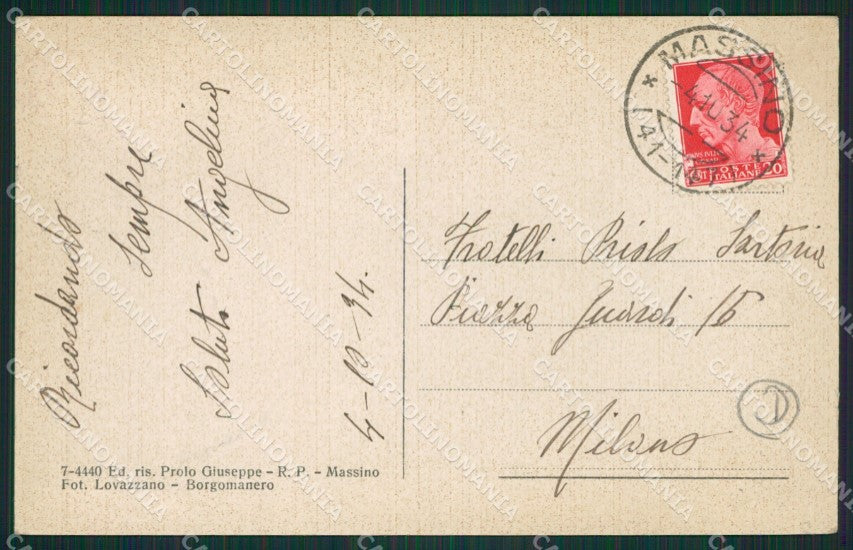 Ricordando
sempre
Saluti Angelina
4-10-34.
7-4440 Ed. ris. Prolo Giuseppe - R. P. - Massino
Fot. Lovazzano - Borgomanero
* MASSINO *
4.10.34
POSTE
ITALIANE
20
Fratelli Sartoria
Piazza Guardi 15
Milano
CARTOLINOMANIA